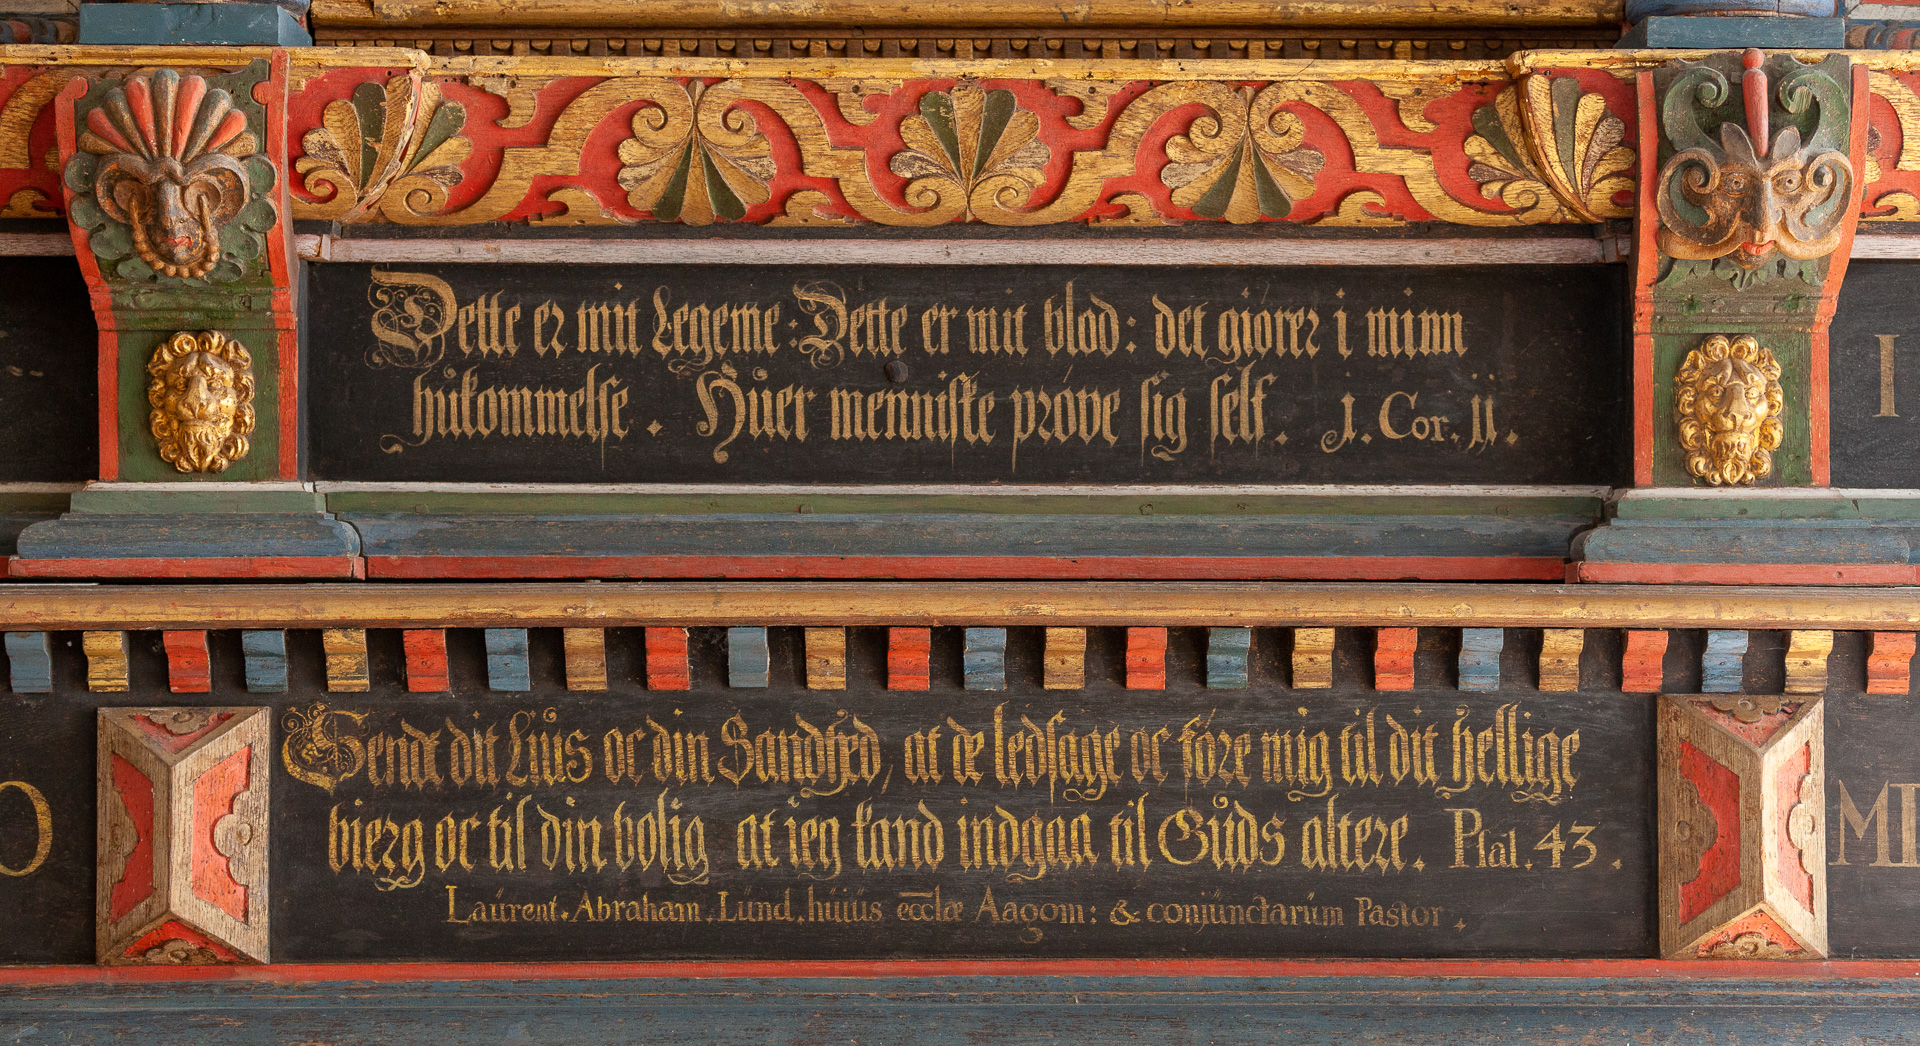 Dette er mit Legeme: Dette er mit blod: det giører i minn
hukommelse. Huer menniske prøve sig self. 1. Cor. 11.
I
Sendt dit Lius oc din Sandhed, at de ledsage oc føre mig til dit hellige
O
bierg oc til din bolig at ieg kand indgaa til Guds altere. Psal. 43.
MD
Laurent. Abraham. Lund. huius eccläe Aagom: & conjunctarum Pastor.